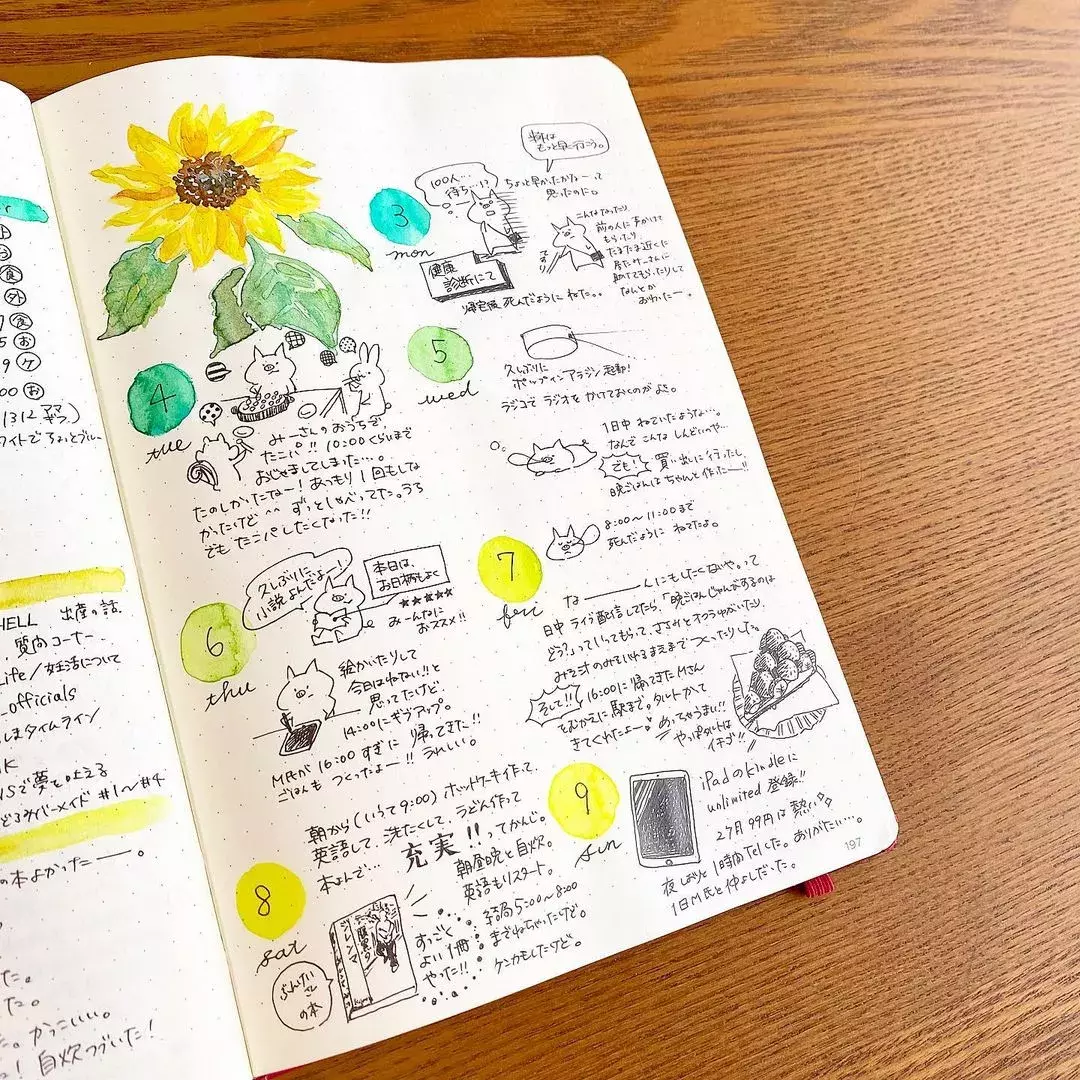 HELL 出産の話
質問コーナー
Life/妊活について
_officials
タイムライン
NSで夢を叶える
バーメイド #1〜#4
の本よかったー。
た。
た。
た。かっこいい。
! 自炊つづいた!
3
mon
100人…
待ち…!?
来年は
もっと早く行こう。
ちょっと早かったかなーって
思ったのに。
健康
診断にて
こんなになったり
前の人に声かけて
もらったり
たまたま近くに
助けてもらったりして
なんとか
おわったー。
帰宅後 死んだように ねた。。
4
tue
みーさんのおうちで、
たこパ!! 10:00くらいまで
おじゃましてしまった…。
たのしかったなー! あっもり 1回もしな
かったけど^^ ずっとしゃべってた。うち
でも たこパしたくなった!!
5
wed
久しぶりに
ポップインアラジン 起動!
ラジコで ラジオを かけておくのがよき。
1日中 ねていたような…。
なんで こんな しんどいのや…
でも! 買い出しに行ったし、
晩ごはんは ちゃんと作ったー!!
6
thu
久しぶりに
小説よんだよー!
本日は、
お日柄もよく
★★★★★
みーんなに
おススメ!!
絵かいたりして
今日はねない!! と
思ってたけど
14:00にギブアップ。
M氏が 16:00 すぎに 帰ってきた!!
ごはんも つくったよー!! うれしい。
7
fri
8:00〜11:00まで
死んだように ねてたよ。
なーーんにもしたくないや。って
日中 ライブ配信してたら、「晩ごはん
どう?」っていってもらって、ささみとオクラゆがいたり、
みそ汁のみそいれるまえまで つくったりした。
そして!! 16:00に 帰ってきたMさん
をむかえに 駅まで。タルトかって
きてくれたよー♥ めっちゃうま!!
やっぱタルトは
イチゴ!!
8
sat
朝から(いうて9:00) ホットケーキ作って、
英語して、洗たくして、うどん作って
本よんで… 充実!! ってかんじ。
朝昼晩と自炊。
英語もリスタート。
結局 5:00〜8:00
までねちゃったけど。
ケンカもしたけど。
すっごく
よい1冊
やった!!
ぶんけい
さん
の本
腹黒の
ジレンマ
9
sun
iPadのkindleに
unlimited 登録!!
2ヶ月 99円は 熱い
夜 しばりと 1時間Telした。ありがたい…。
1日M氏と仲よしだった。
197